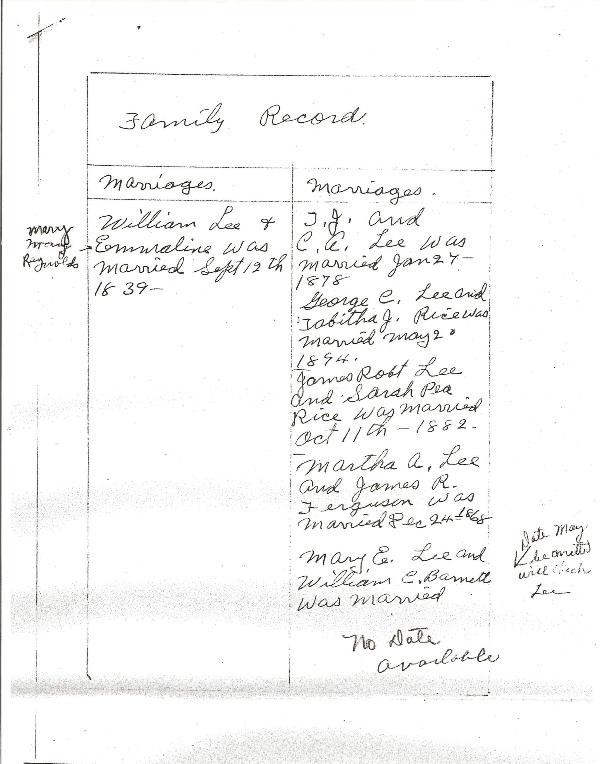 Family Record.
Marriages.
William Lee &
Emmraline was
married Sept 12th
1839-
mary
mary
Reynolds
Marriages.
T.J. and
C.A. Lee was
married Jan 27-
1878
George C. Lee and
Tabitha J. Rice was
married may 2
1894.
James Robt Lee
and Sarah Pea
Rice was married
Oct 11th - 1882.
Martha A. Lee
and James R.
Ferguson was
married Dec 24th 1868
Mary E. Lee and
William C. Barnett
was married
No Date
available
Date May
be omitted
will check
Lee